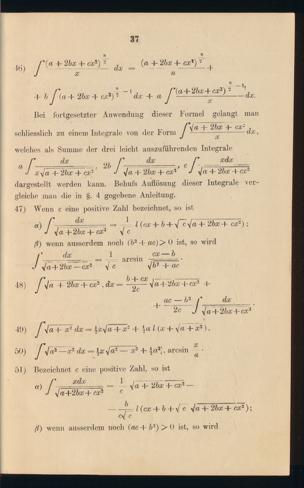 37
46) ∫ (a + 2bx + cx²)^{n/2} / x dx = (a + 2bx + cx²)^{n/2} / n +
+ b ∫ (a + 2bx + cx²)^{n/2 − 1} dx + a ∫ (a+2bx+cx²)^{n/2 − 1} / x dx.
Bei fortgesetzter Anwendung dieser Formel gelangt man
schliesslich zu einem Integrale von der Form ∫ √(a + 2bx + cx²) / x dx,
welches als Summe der drei leicht auszuführenden Integrale
a ∫ dx / x√(a + 2bx + cx²), 2b ∫ dx / √(a + 2bx + cx²), c ∫ xdx / √(a + 2bx + cx²)
dargestellt werden kann. Behufs Auflösung dieser Integrale ver-
gleiche man die in §. 4 gegebene Anleitung.
47) Wenn c eine positive Zahl bezeichnet, so ist
α) ∫ dx / √(a + 2bx + cx²) = 1/√c l (cx + b + √c √(a + 2bx + cx²));
β) wenn ausserdem noch (b² + ac) > 0 ist, so wird
∫ dx / √(a+2bx−cx²) = 1/√c arcsin (cx − b) / √(b² + ac).
48) ∫ √(a + 2bx + cx²) . dx = (b + cx) / 2c √(a+2bx + cx²) +
+ (ac − b²) / 2c ∫ dx / √(a+2bx+cx²).
49) ∫ √(a + x²) dx = ½x √(a + x²) + ½a l (x + √(a + x²)).
50) ∫ √(a² − x²) dx = ½x √(a² − x²) + ½a². arcsin x/a.
51) Bezeichnet c eine positive Zahl, so ist
α) ∫ xdx / √(a+2bx+cx²) = 1/c √(a + 2bx + cx²) −
− b / c√c l (cx + b + √c √(a + 2bx + cx²));
β) wenn ausserdem noch (ac + b²) > 0 ist, so wird